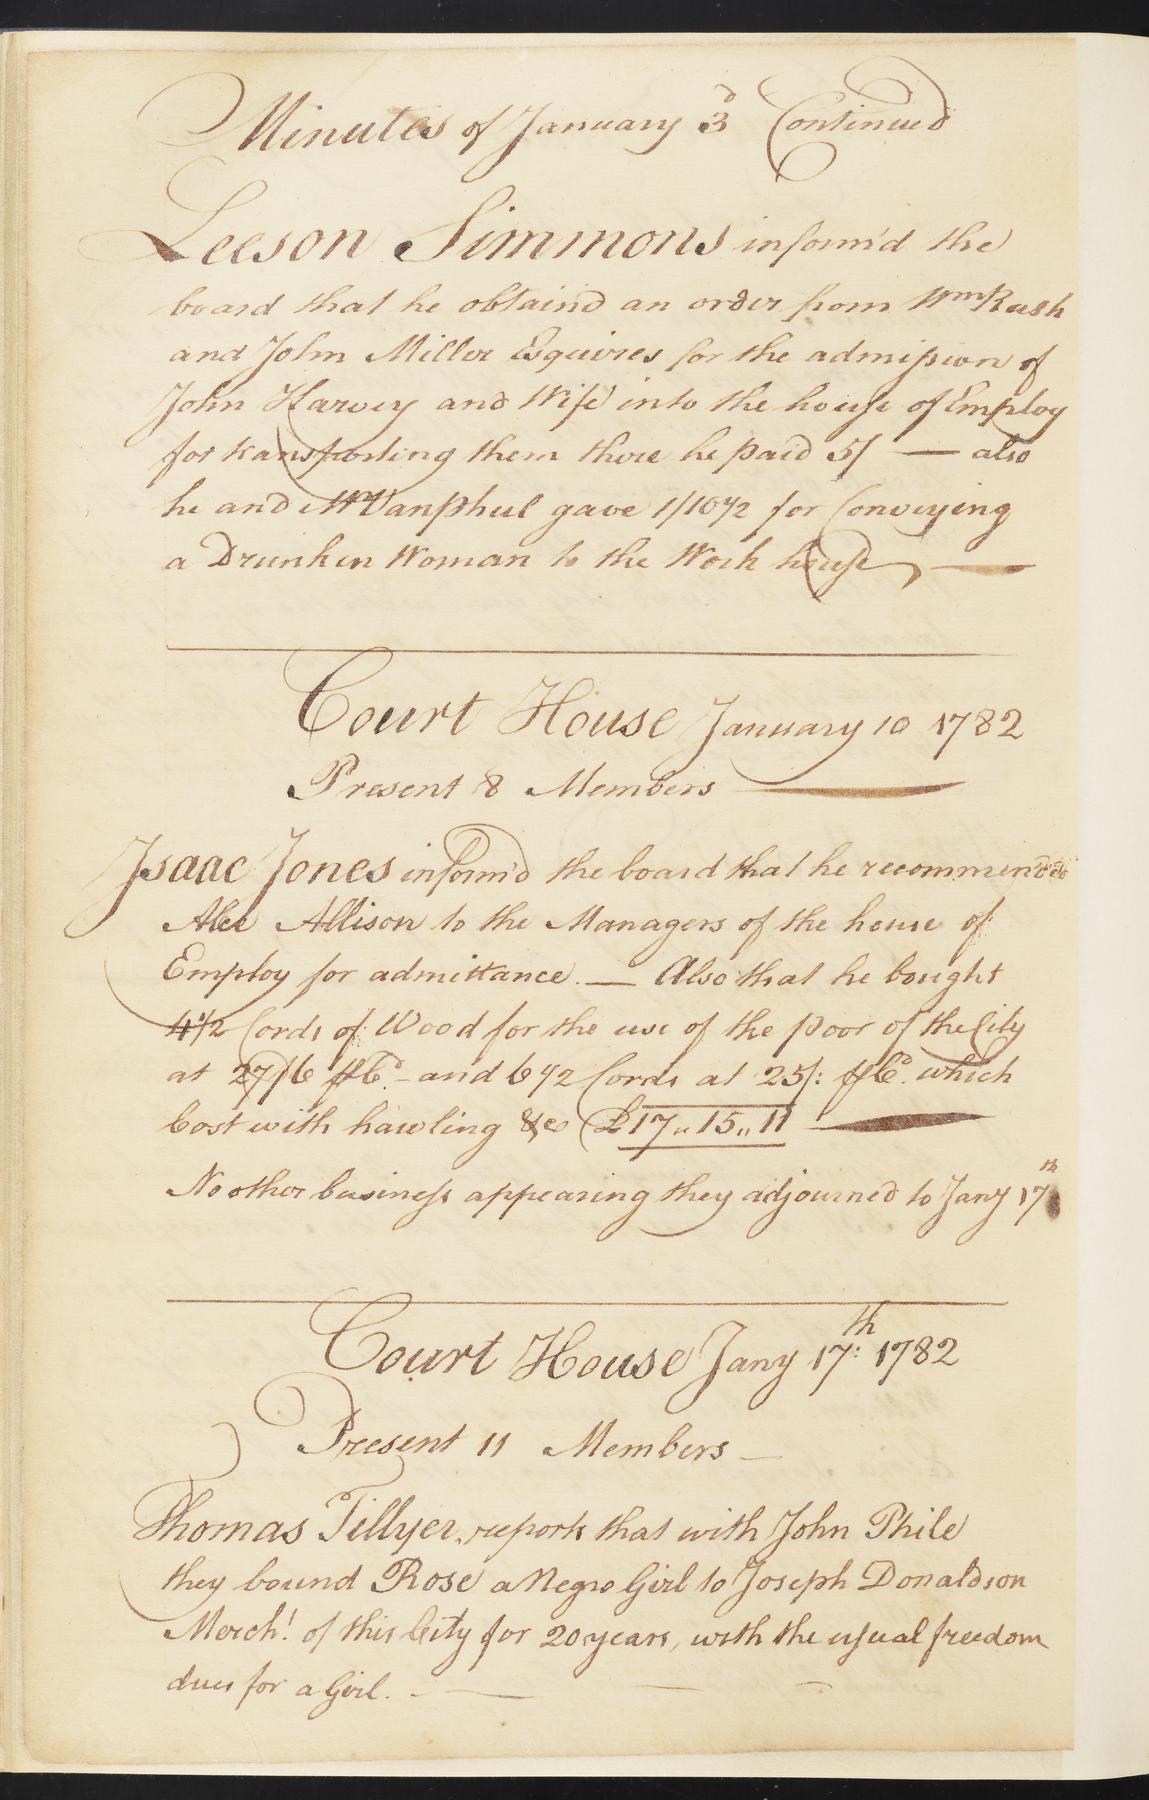 Minutes of January 3d Continued
Leeson Simmons inform'd the
board that he obtain'd an order from Wm Rush
and John Miller Esquires for the admission of
John Harvey and Wife into the house of Employ
for transporting them there he paid 5/ — also
he and Mr Vanphul gave 1/10 1/2 for Conveying
a Drunken Woman to the Work house —
Court House January 10 1782
Present 8 Members
Isaac Jones inform'd the board that he recommended
Allison to the Managers of the house of
Employ for admittance. — Also that he bought
4 1/2 Cords of Wood for the use of the poor of the City
at 27/6 ⅌ Cd. - and 6 1/2 Cords at 25/: ⅌ Cd. which
Cost with hawling &c £17,, 15,, 11
No other business appearing they adjourned to Jany 17th
Court House Jany 17th: 1782
Present 11 Members —
Thomas Tillyer, reports that with John Phile
they bound Rose a Negro Girl to Joseph Donaldson
Mercht. of this City for 20 years, with the usual freedom
dues for a Girl. - —